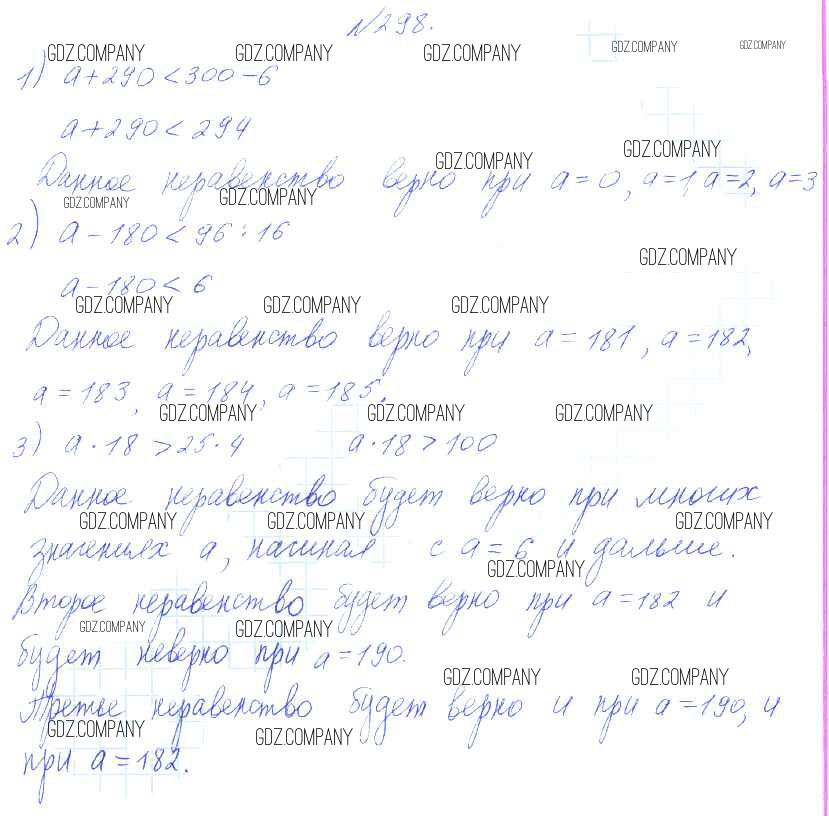 №298.
GDZ.COMPANY GDZ.COMPANY GDZ.COMPANY GDZ.COMPANY GDZ.COMPANY
1) a+290<300-6
a+290<294
GDZ.COMPANY GDZ.COMPANY
Данное неравенство верно при a=0, a=1, a=2, a=3
GDZ.COMPANY GDZ.COMPANY
2) a-180<96:16
GDZ.COMPANY
a-180<6
GDZ.COMPANY GDZ.COMPANY GDZ.COMPANY
Данное неравенство верно при a=181, a=182,
a=183, a=184, a=185.
GDZ.COMPANY GDZ.COMPANY GDZ.COMPANY
3) a·18>25·4 a·18>100
Данное неравенство будет верно при многих
GDZ.COMPANY GDZ.COMPANY GDZ.COMPANY
значениях a, начиная с a=6 и дальше.
GDZ.COMPANY
Второе неравенство будет верно при a=182 и
GDZ.COMPANY GDZ.COMPANY
будет неверно при a=190.
GDZ.COMPANY GDZ.COMPANY
Третье неравенство будет верно и при a=190, и
GDZ.COMPANY GDZ.COMPANY
при a=182.